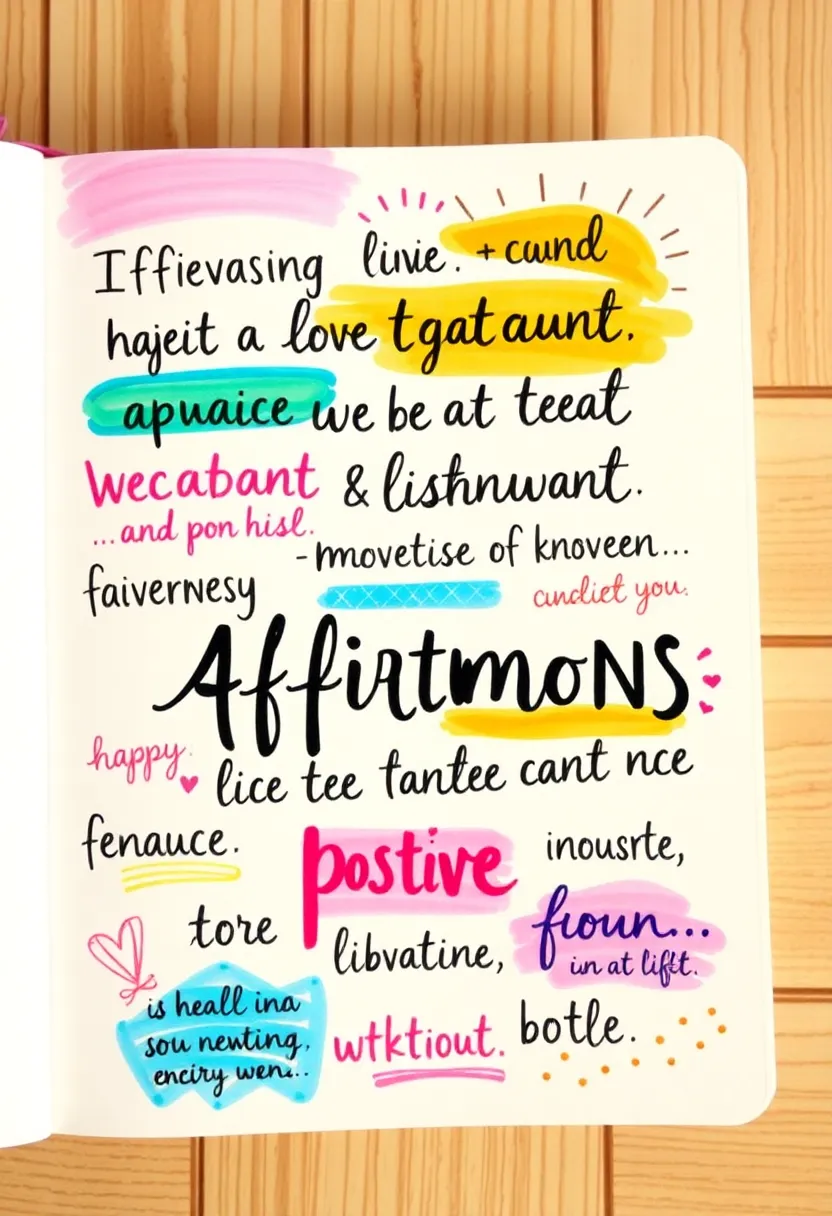 Iffievasing livie. + cwnd
hajeit a love tgat aunt.
apuaice we be at teeat
Wecabant & lishnwant.
...and pon hisl.
-mmovetise of knoveen...
faivernesy
andiet you.
Affirtmons
happy.
lice tee tantee cant nce
fenauce.
postive
inousrte,
tore
libvatine,
floun...
in at lift.
is heall ina
sou newting,
enciry wen...
wtktiout.
botle.